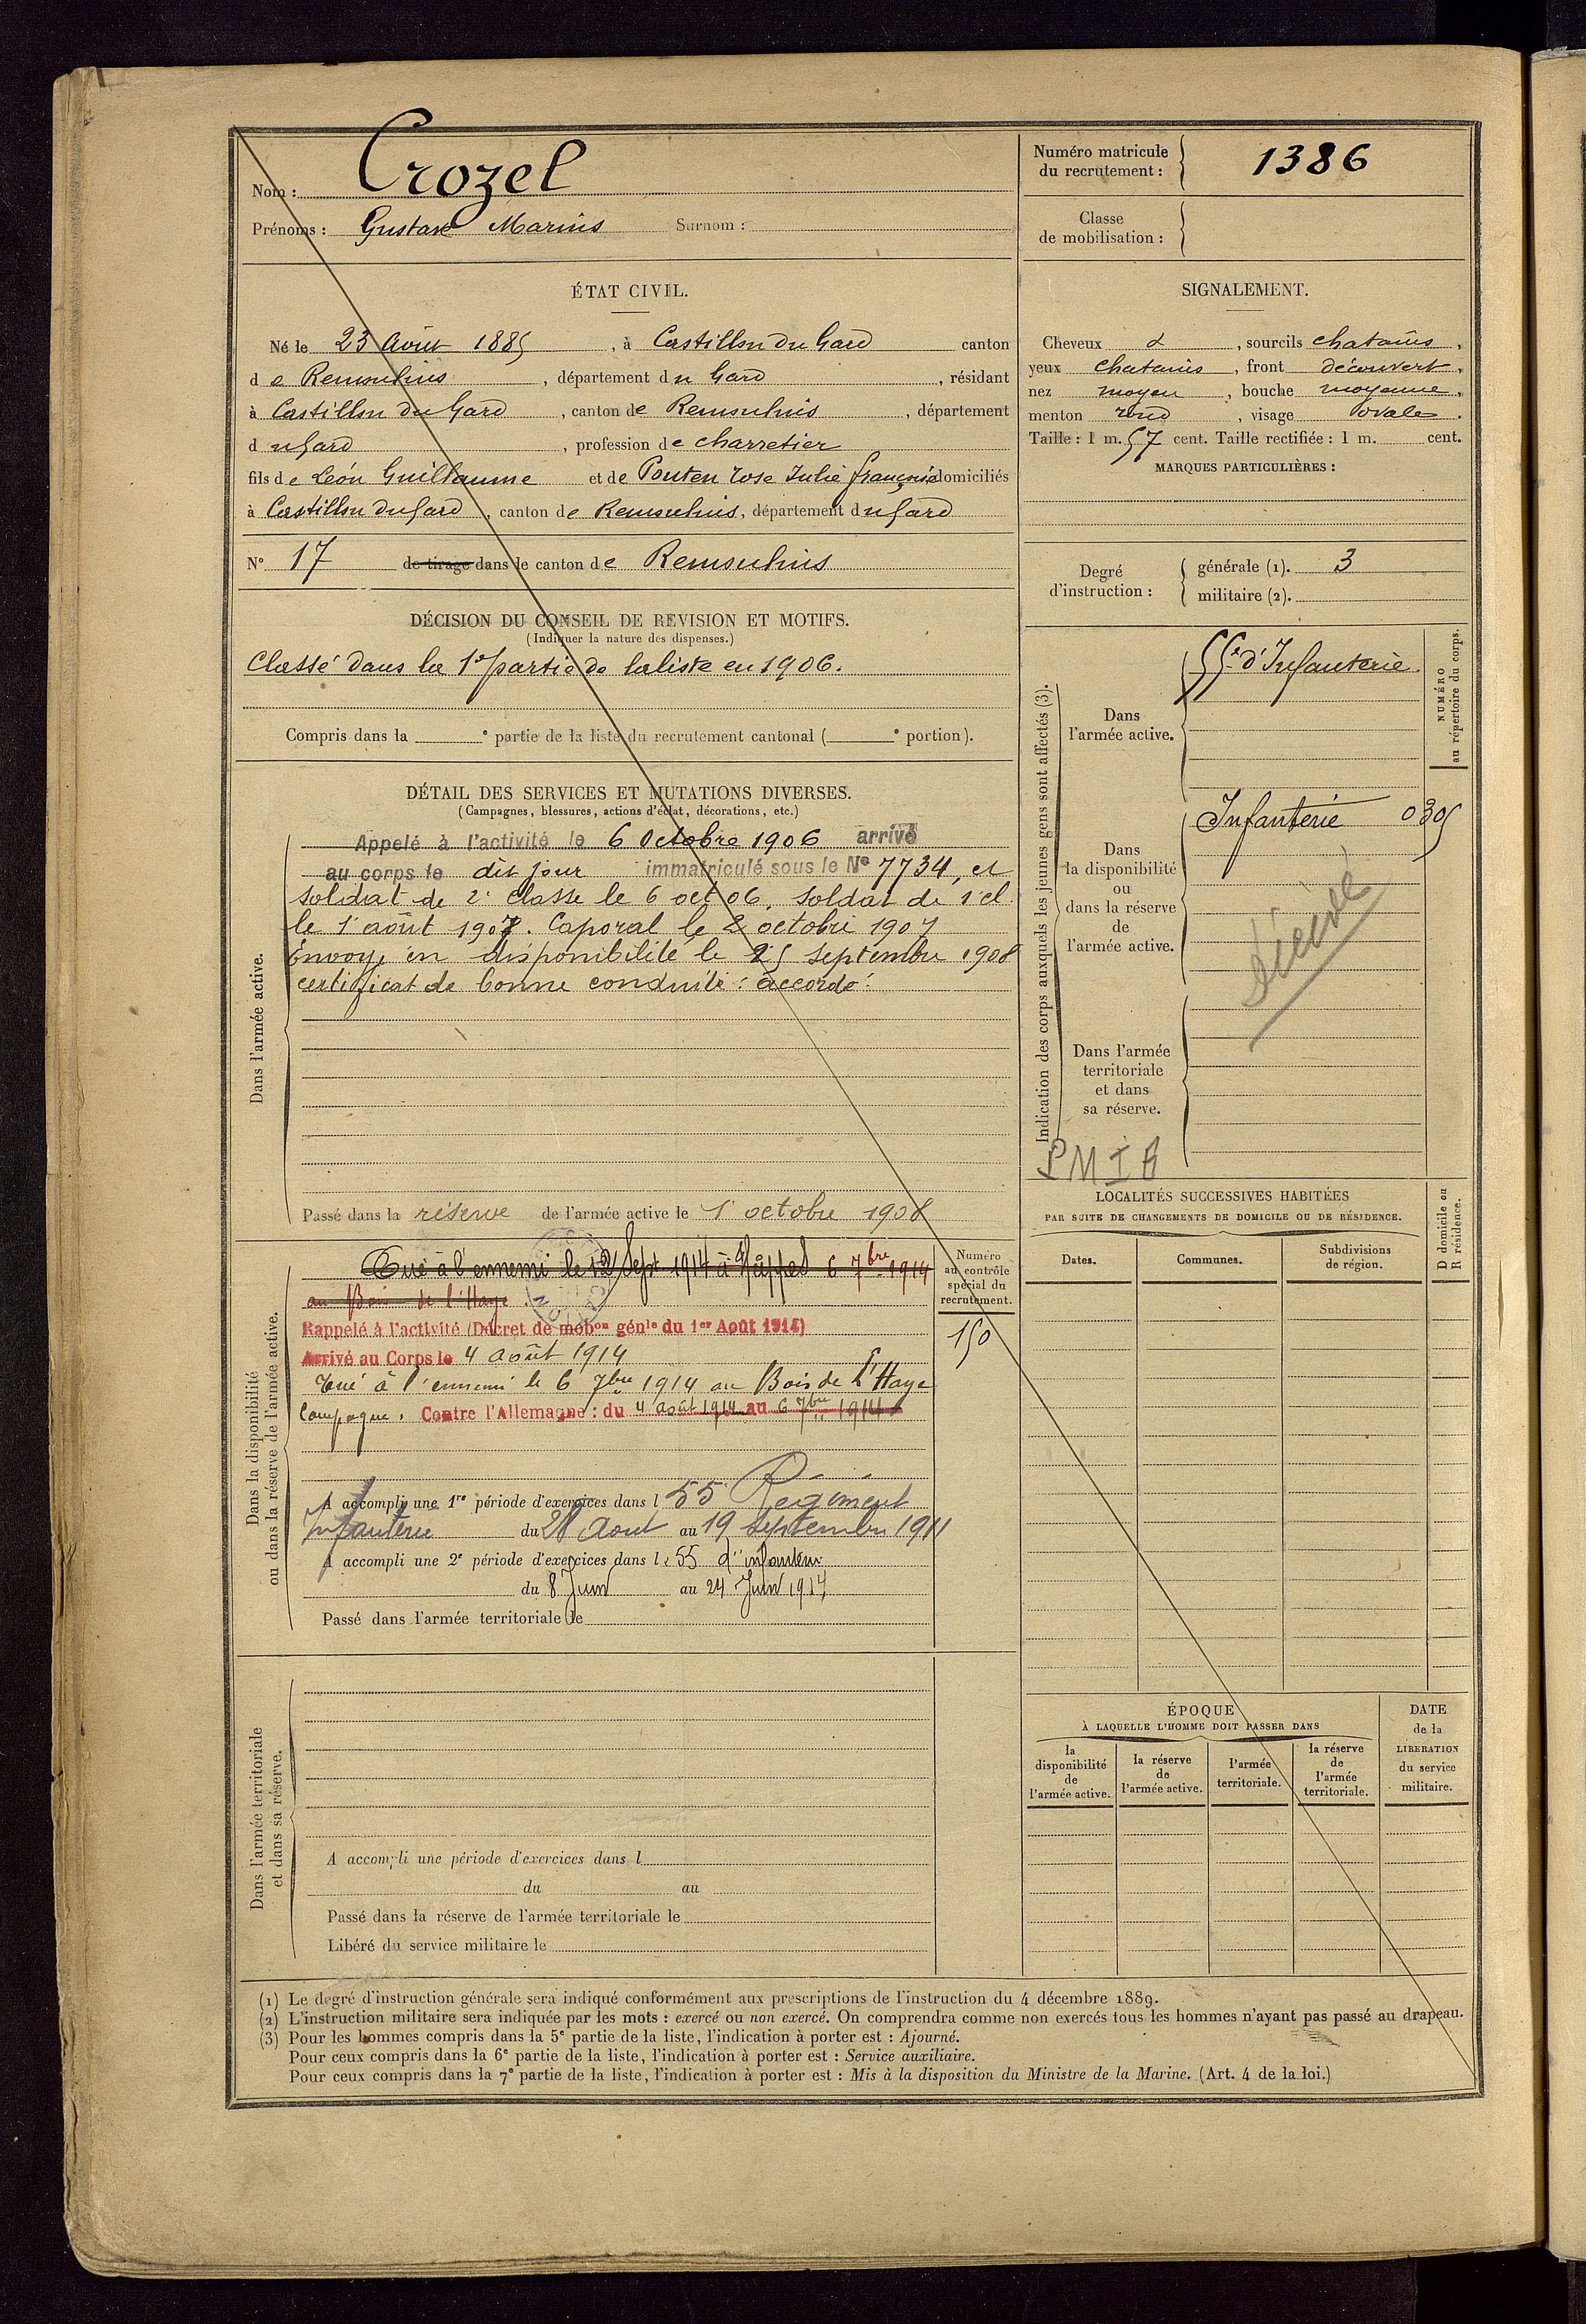 Nom : Crozel
Prénoms : Gustave Marius Surnom :
ÉTAT CIVIL.
Né le 23 Août 1885, à Castillon du Gard canton
de Remoulins, département du Gard, résidant
à Castillon du Gard, canton de Remoulins, département
du Gard, profession de charretier
fils de Léon Guillaume et de Rose Julie domiciliés
à Castillon du Gard, canton de Remoulins, département du Gard
N° 17 de tirage dans le canton de Remoulins
DÉCISION DU CONSEIL DE REVISION ET MOTIFS.
(Indiquer la nature des dispenses.)
Classé dans la 1re partie de la liste en 1906.
Compris dans la e partie de la liste du recrutement cantonal ( e portion).
DÉTAIL DES SERVICES ET MUTATIONS DIVERSES.
(Campagnes, blessures, actions d'éclat, décorations, etc.)
Dans l'armée active.
Appelé à l'activité le 6 Octobre 1906 arrivé
au corps le dit jour immatriculé sous le N° 7734, et
soldat de 2e classe le 6 oct 06, soldat de 1 cl.
le 1er août 1907. Caporal le 2 octobre 1907
Envoyé en disponibilité le 25 septembre 1908
certificat de bonne conduite : accordé.
Passé dans la réserve de l'armée active le 1er octobre 1908
Dans la disponibilité
ou dans la réserve de l'armée active.
Tué à l'ennemi le Sept 1914 à 6 7bre 1914
au Bois de l'Haye.
Rappelé à l'activité (Décret de mobon génle du 1er Août 1914)
Arrivé au Corps le 4 août 1914
Tué à l'ennemi le 6 7bre 1914 au Bois de l'Haye
Campagne. Contre l'Allemagne : du 4 août 1914 au 6 7bre 1914
A accompli une 1re période d'exercices dans l 55 Régiment
Infanterie du 28 Aout au 19 septembre 1911
A accompli une 2e période d'exercices dans le 55 d'infanterie
du 8 Juin au 24 Juin 1914
Passé dans l'armée territoriale le
Numéro
au contrôle
spécial du
recrutement.
150
Dans l'armée territoriale
et dans sa réserve.
A accompli une période d'exercices dans l
du au
Passé dans la réserve de l'armée territoriale le
Libéré du service militaire le
Numéro matricule
du recrutement : 1386
Classe
de mobilisation :
SIGNALEMENT.
Cheveux &, sourcils chatains,
yeux chatains, front découvert,
nez moyen, bouche moyenne,
menton rond, visage ovale.
Taille : 1 m. 57 cent. Taille rectifiée : 1 m. cent.
MARQUES PARTICULIÈRES :
Degré
d'instruction :
générale (1). 3
militaire (2).
Indication des corps auxquels les jeunes gens sont affectés (3).
NUMÉRO
au répertoire du corps.
Dans
l'armée active.
55e d'Infanterie
Dans
la disponibilité
ou
dans la réserve
de
l'armée active.
Infanterie 0305
décédé
Dans l'armée
territoriale
et dans
sa réserve.
LOCALITÉS SUCCESSIVES HABITÉES
PAR SUITE DE CHANGEMENTS DE DOMICILE OU DE RÉSIDENCE.
D domicile ou
R résidence.
Dates. Communes. Subdivisions
de région.
ÉPOQUE
À LAQUELLE L'HOMME DOIT PASSER DANS
la
disponibilité
de
l'armée active.
la réserve
de
l'armée active.
l'armée
territoriale.
la réserve
de
l'armée
territoriale.
DATE
de la
LIBÉRATION
du service
militaire.
(1) Le degré d'instruction générale sera indiqué conformément aux prescriptions de l'instruction du 4 décembre 1889.
(2) L'instruction militaire sera indiquée par les mots : exercé ou non exercé. On comprendra comme non exercés tous les hommes n'ayant pas passé au drapeau.
(3) Pour les hommes compris dans la 5e partie de la liste, l'indication à porter est : Ajourné.
Pour ceux compris dans la 6e partie de la liste, l'indication à porter est : Service auxiliaire.
Pour ceux compris dans la 7e partie de la liste, l'indication à porter est : Mis à la disposition du Ministre de la Marine. (Art. 4 de la loi.)